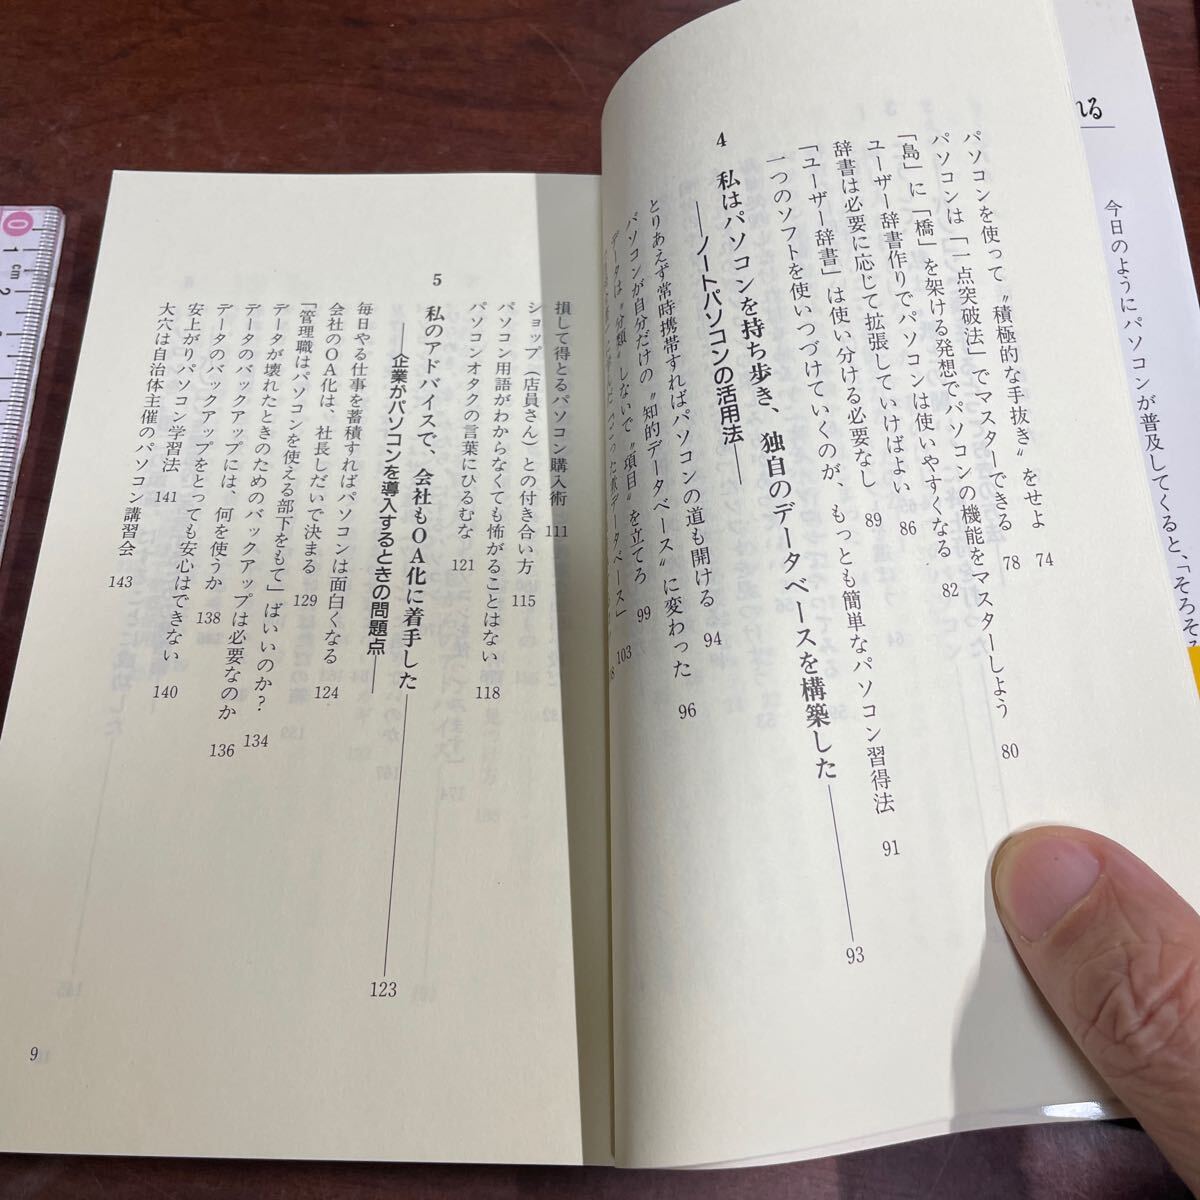 れる
今日のようにパソコンが普及してくると、「そろそ
パソコンを使って〝積極的な手抜き〟をせよ 74
パソコンは「一点突破法」でマスターできる 78
「島」に「橋」を架ける発想でパソコンの機能をマスターしよう 80
ユーザー辞書作りでパソコンは使いやすくなる 82
辞書は必要に応じて拡張していけばよい 86
「ユーザー辞書」は使い分ける必要なし 89
一つのソフトを使いつづけていくのが、もっとも簡単なパソコン習得法 91
4 私はパソコンを持ち歩き、独自のデータベースを構築した 93
――ノートパソコンの活用法――
とりあえず常時携帯すればパソコンの道も開ける 94
パソコンが自分だけの〝知的データベース〟に変わった 96
データは〝分類〟しないで〝項目〟を立てろ 99
データベース」 103
損して得とるパソコン購入術 111
ショップ(店員さん)との付き合い方 115
パソコン用語がわからなくても怖がることはない 118
パソコンオタクの言葉にひるむな 121
5 私のアドバイスで、会社もOA化に着手した 123
――企業がパソコンを導入するときの問題点――
毎日やる仕事を蓄積すればパソコンは面白くなる 124
会社のOA化は、社長しだいで決まる 129
「管理職はパソコンを使える部下をもて」ばいいのか? 134
データが壊れたときのためのバックアップは必要なのか 136
データのバックアップには、何を使うか 138
データのバックアップをとっても安心はできない 140
安上がりパソコン学習法 141
大穴は自治体主催のパソコン講習会 143
9
0 1 cm 2